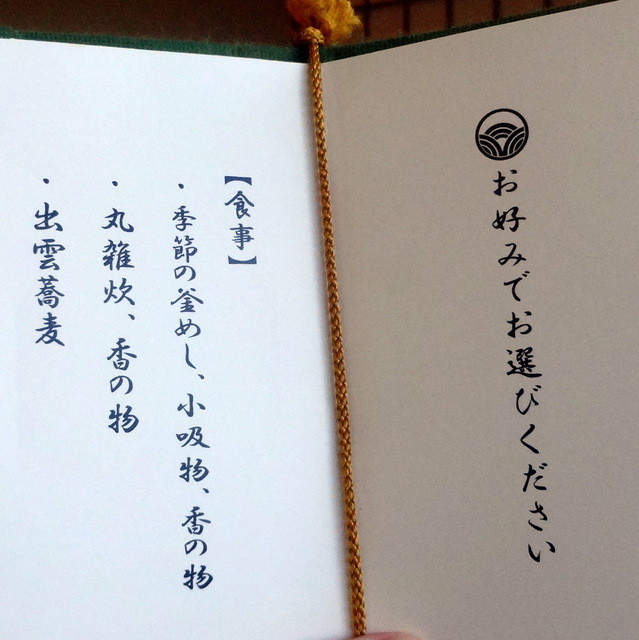 お好みでお選びください
【食事】
・季節の釜めし、小吸物、香の物
・丸雑炊、香の物
・出雲蕎麦